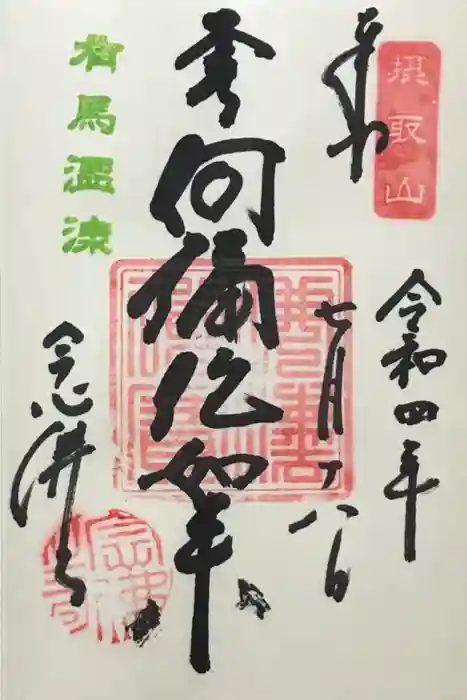 摂取山
奉拝
令和四年
七月十八日
阿彌陀如来
有馬温泉
念佛寺